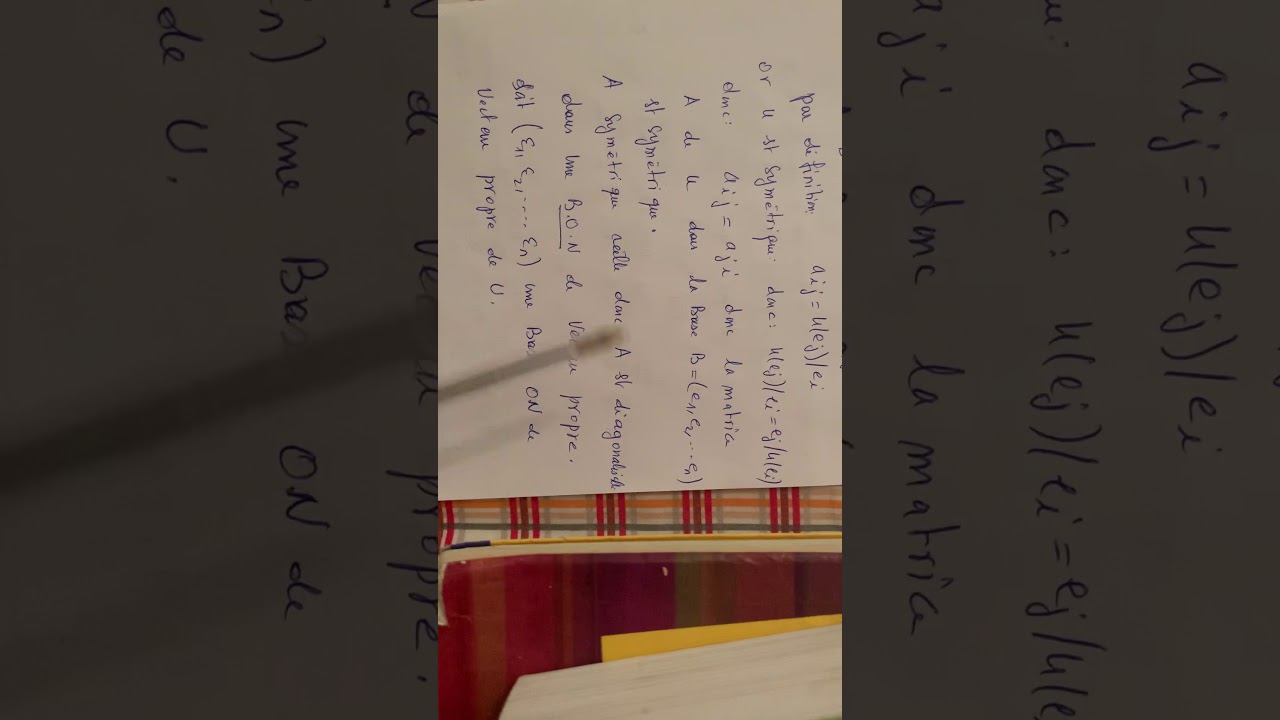 par définition: aij = u(ej)/ei
or u st symétrique donc: u(ej)/ei = ej/u(ei)
donc: aij = aji donc la matrice
A de u dans la Base B = (e1, e2, ... en)
st symétrique.
A symétrique réelle donc A st diagonalisable
dans une B.O.N de propre.
Soit (ε1, ε2, ..... εn) une ON de
Vecteur propre de U.